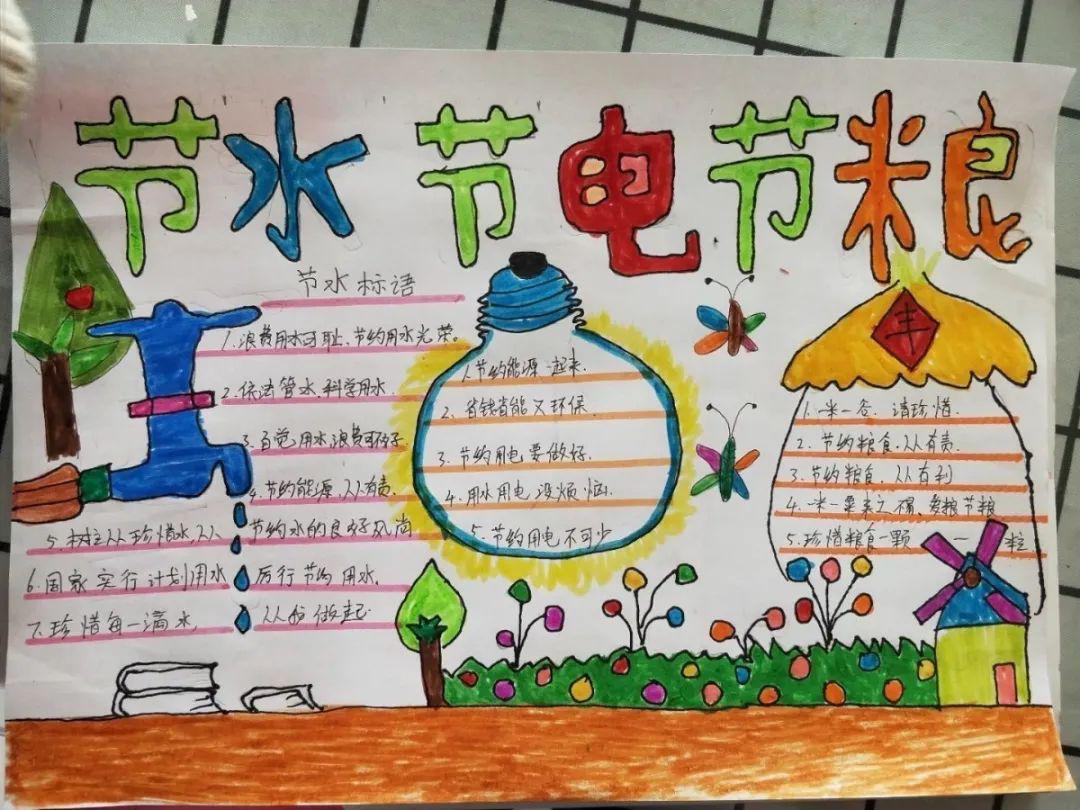 节水 节电 节粮
节水标语
1. 浪费用水可耻,节约用水光荣。
2. 依法管水,科学用水
3. 百觉用水浪费环好
4. 节约能源,人人有责.
5. 树立人人珍惜水,人人节约水的良好风尚
6. 国家实行计划用水 厉行节约用水.
7. 珍惜每一滴水, 从我做起
1. 节约能源一起来.
2. 省钱省能又环保.
3. 节约用电要做好.
4. 用水用电没烦恼.
5. 节约用电不可少
丰
1. 一米一谷.请珍惜.
2. 节约粮食,人人有责.
3. 节约粮食,人人有利
4. 米一粟来之不易、爱粮节粮
5. 珍惜粮食一颗 一 粒